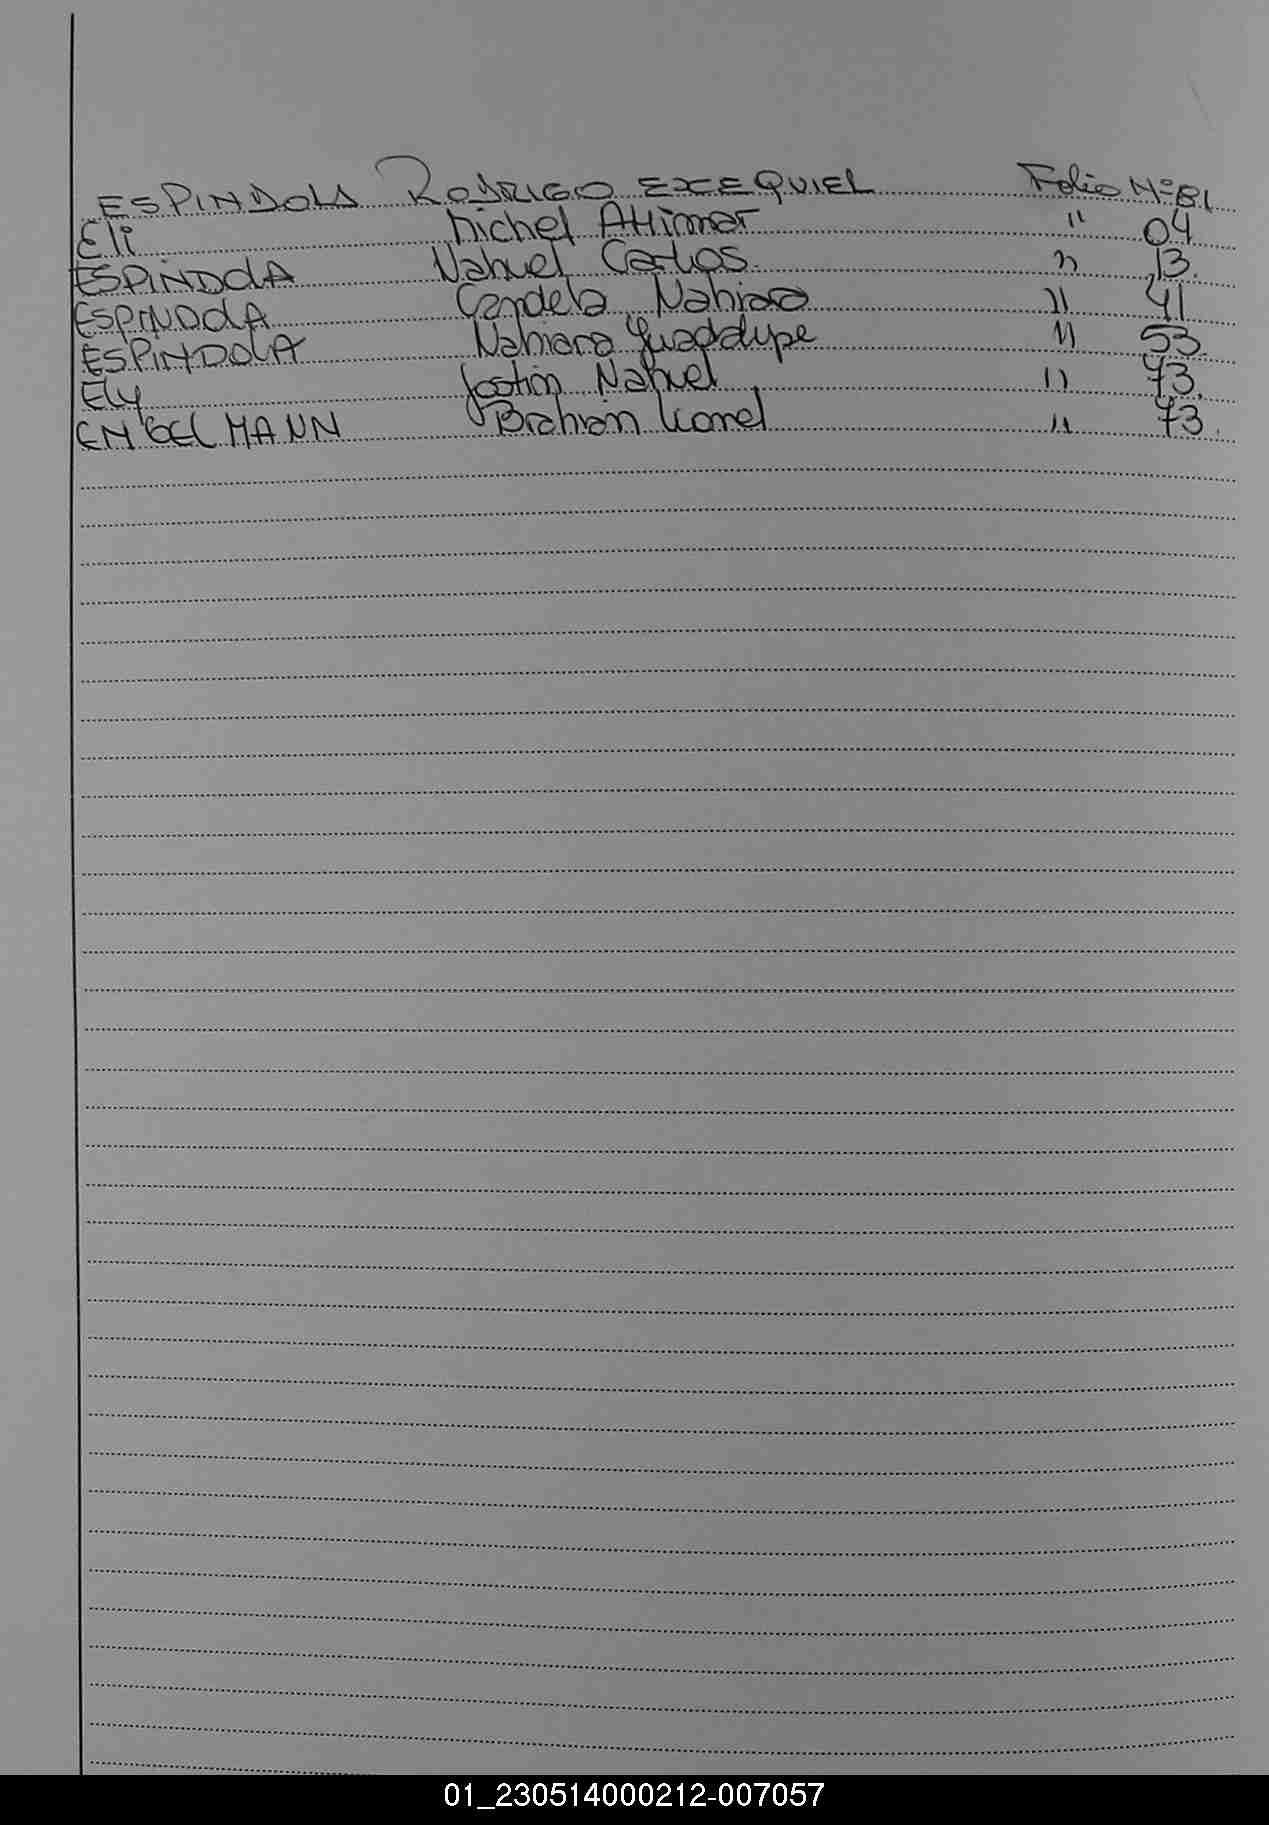 ESPINDOLA RODRIGO EXEQUIEL Folio Nº 81
Eli Michel Altimar " 04
ESPINDOLA Nahuel Carlos " 13
ESPINDOLA Candela Nahiara " 41
ESPINDOLA Nahiara Guadalupe " 53
Ely Jostin Nahuel " 73
ENGELMANN Brahian Lionel " 73
01_230514000212-007057